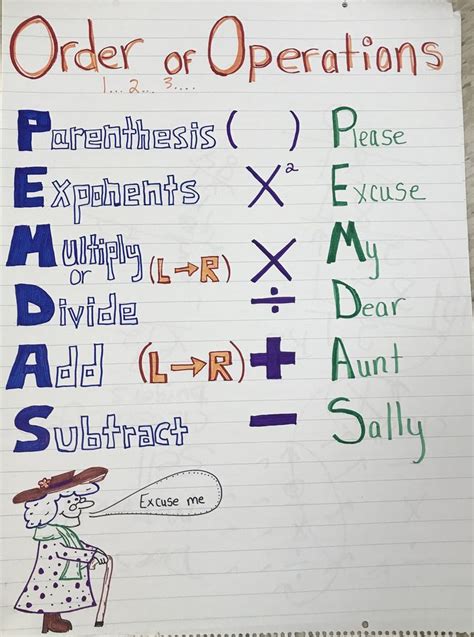 Order of Operations
1... 2... 3....
Parenthesis ( ) Please
Exponents X² Excuse
Multiply (L→R) × My
or
Divide ÷ Dear
Add (L→R) + Aunt
Subtract − Sally
Excuse me